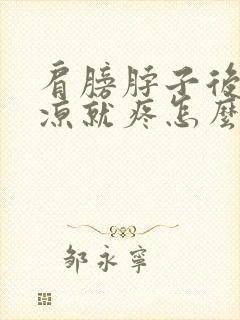 肩膀脖子後
凉就疼怎麼
邹永寧